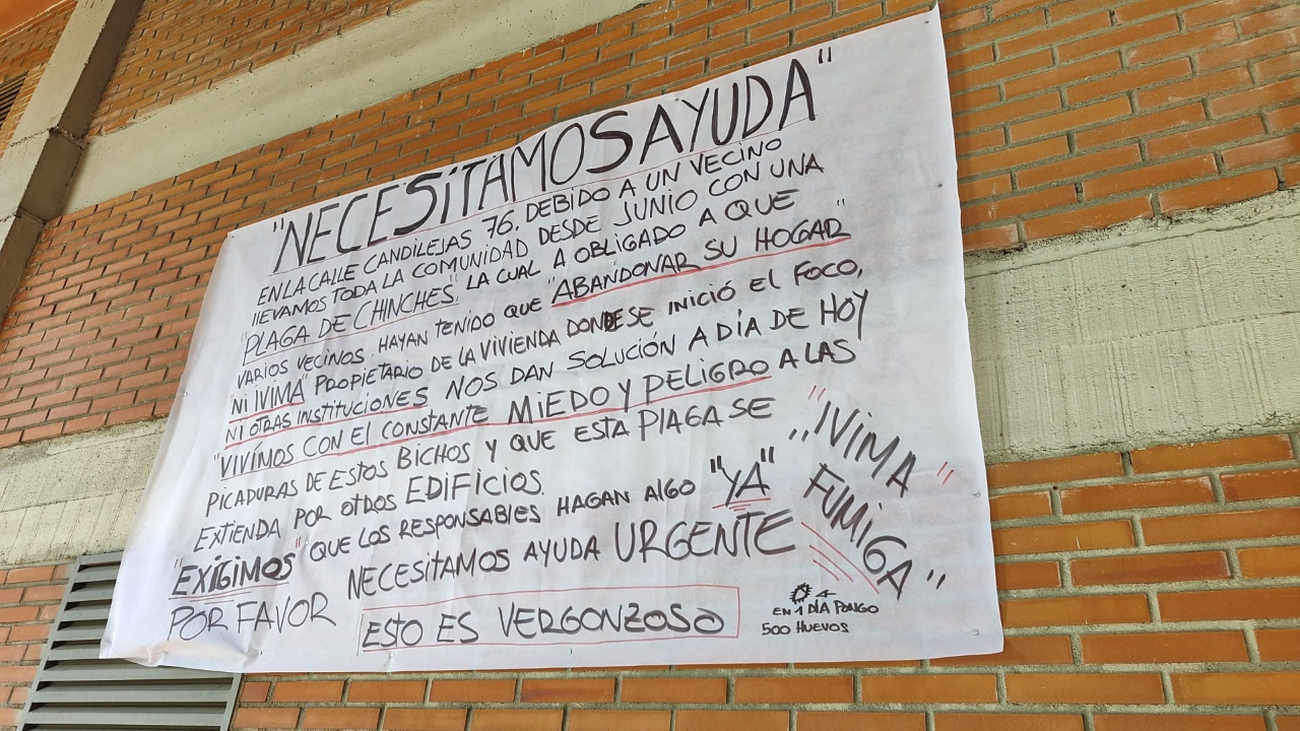 "NECESITAMOS AYUDA"
EN LA CALLE CANDILEJAS 76. DEBIDO A UN VECINO
LLEVAMOS TODA LA COMUNIDAD DESDE JUNIO CON UNA
"PLAGA DE CHINCHES", LA CUAL A OBLIGADO A QUE
VARIOS VECINOS HAYAN TENIDO QUE "ABANDONAR SU HOGAR"
"NI IVIMA" PROPIETARIO DE LA VIVIENDA DONDE SE INICIÓ EL FOCO,
NI OTRAS INSTITUCIONES NOS DAN SOLUCIÓN A DÍA DE HOY
"VIVIMOS CON EL CONSTANTE MIEDO Y PELIGRO A LAS
PICADURAS DE ESTOS BICHOS Y QUE ESTA PLAGA SE
EXTIENDA POR OTROS EDIFICIOS.
"EXIGIMOS" QUE LOS RESPONSABLES HAGAN ALGO "YA"
POR FAVOR NECESITAMOS AYUDA URGENTE
ESTO ES VERGONZOSO
"IVIMA"
"FUMIGA"
EN 1 DÍA PONGO
500 HUEVOS